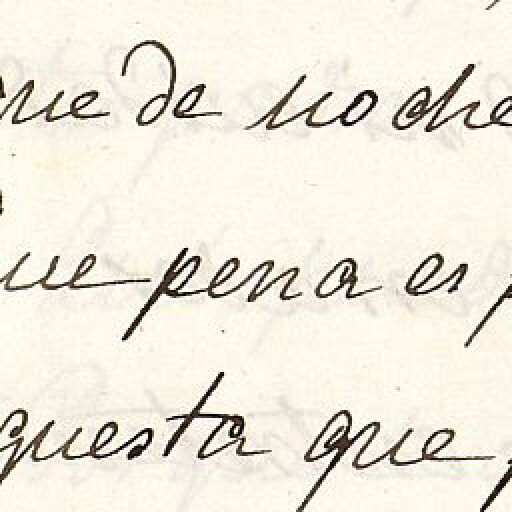 ue de noche
ue pena es p
questa que p